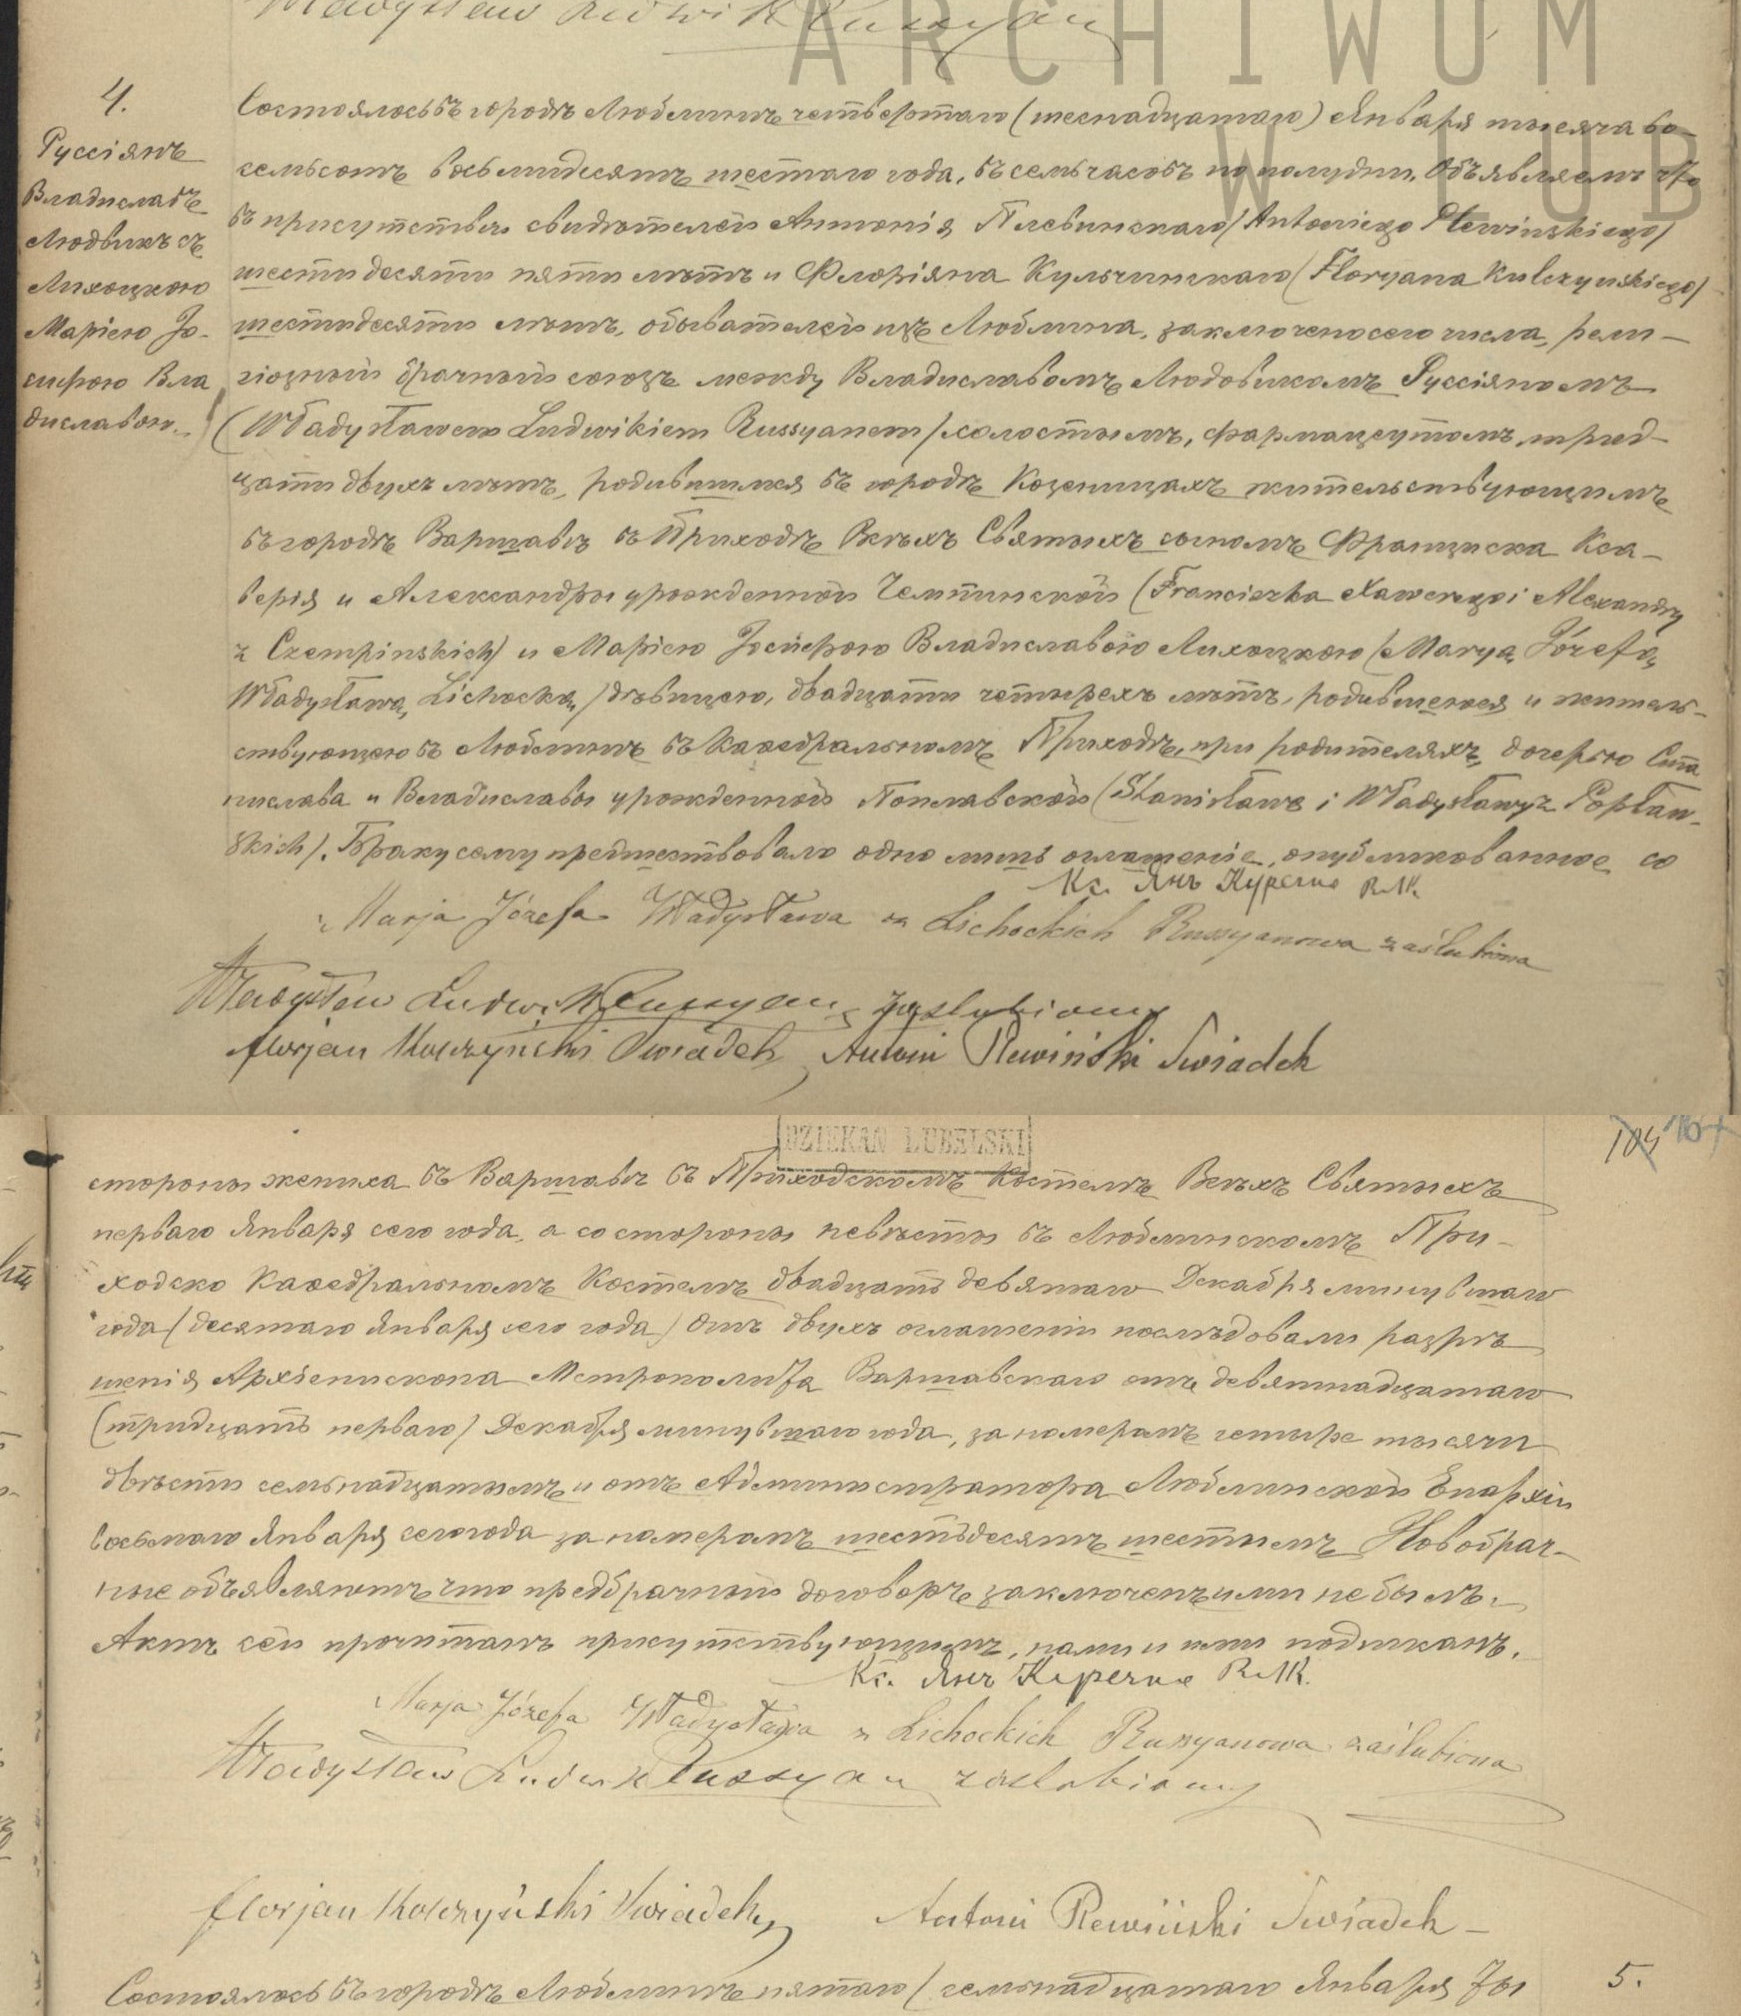 Władysław Ludwik Russyan
ARCHIWUM
W LUB
4.
Руссіянъ
Владиславъ
Людвикъ съ
Лихоцкою
Маріею Іо-
сифою Вла
диславою.
Состоялось въ городѣ Люблинѣ четвертаго (шеснадцатаго) Января тысяча во-
семьсотъ восьмидесятъ шестаго года, въ семь часовъ по полудни. Объявляемъ что
въ присутствіи свидѣтелей Антонія Плевинскаго (Antoniego Plewinskiego)
шестидесяти пяти лѣтъ и Флоріяна Кульчинскаго (Floryana Kulczynskiego)
шестидесяти лѣтъ, обывателей изъ Люблина, заключено сего числа, рели-
гіозный брачный союзъ между Владиславомъ Людовикомъ Руссіяномъ
(Władysławem Ludwikiem Russyanem) холостымъ, фармацеутомъ, трид-
цати двухъ лѣтъ, родившимся въ городѣ Козеницахъ жительствующимъ
въ городѣ Варшавѣ въ Приходѣ Всѣхъ Святыхъ сыномъ Франциска Кса-
верія и Александры урожденной Чемпинской (Franciszka Xawerego i Alexandry
z Czempinskich) и Маріею Іосифою Владиславою Лихоцкою (Maryą Józefą
Władysławą Lichocką) дѣвицею, двадцати четырехъ лѣтъ, родившеюся и житель-
ствующею въ Люблинѣ въ Каѳедральномъ Приходѣ, при родителяхъ, дочерью Ста
нислава и Владиславы урожденной Поплавской (Stanisława i Władysławy z Popław-
skich). Браку сему предшествовало одно лишь оглашеніе, опубликованное со
Кс. Янъ Куречко
Marja Józefa Władysława z Lichockich Russyanowa zaślubiona
Władysław Ludwik Russyan zaślubiony
Florjan Kulczyński Swiadek, Antoni Plewiński Swiadek
DZIEKAN LUBELSKI
104 107
стороны жениха въ Варшавѣ въ Приходскомъ Костелѣ Всѣхъ Святыхъ
перваго Января сего года, а со стороны невѣсты въ Люблинскомъ При-
ходско Каѳедральномъ Костелѣ двадцать девятаго Декабря минувшаго
года (десятаго Января сего года) Отъ двухъ оглашеній послѣдовали разрѣ
шенія Архіепископа Метрополита Варшавскаго отъ девятнадцатаго
(тридцать перваго) Декабря минувшаго года, за номеромъ четыре тысячи
двѣсти семьнадцатымъ и отъ Администратора Люблинской Епархіи
восьмаго Января сего года за номеромъ шестьдесятъ шестымъ Новобрач-
ные объявляютъ что предбрачный договоръ заключенъ ими не былъ.
Актъ сей прочитанъ присутствующимъ, нами и ими подписанъ.
Кс. Янъ Куречко
Marja Józefa Władysława z Lichockich Russyanowa zaślubiona
Władysław Ludwik Russyan zaślubiony
Florjan Kulczyński Swiadek, Antoni Plewiński Swiadek
Состоялось въ городѣ Люблинѣ пятаго (семьнадцатаго Января ты
5.